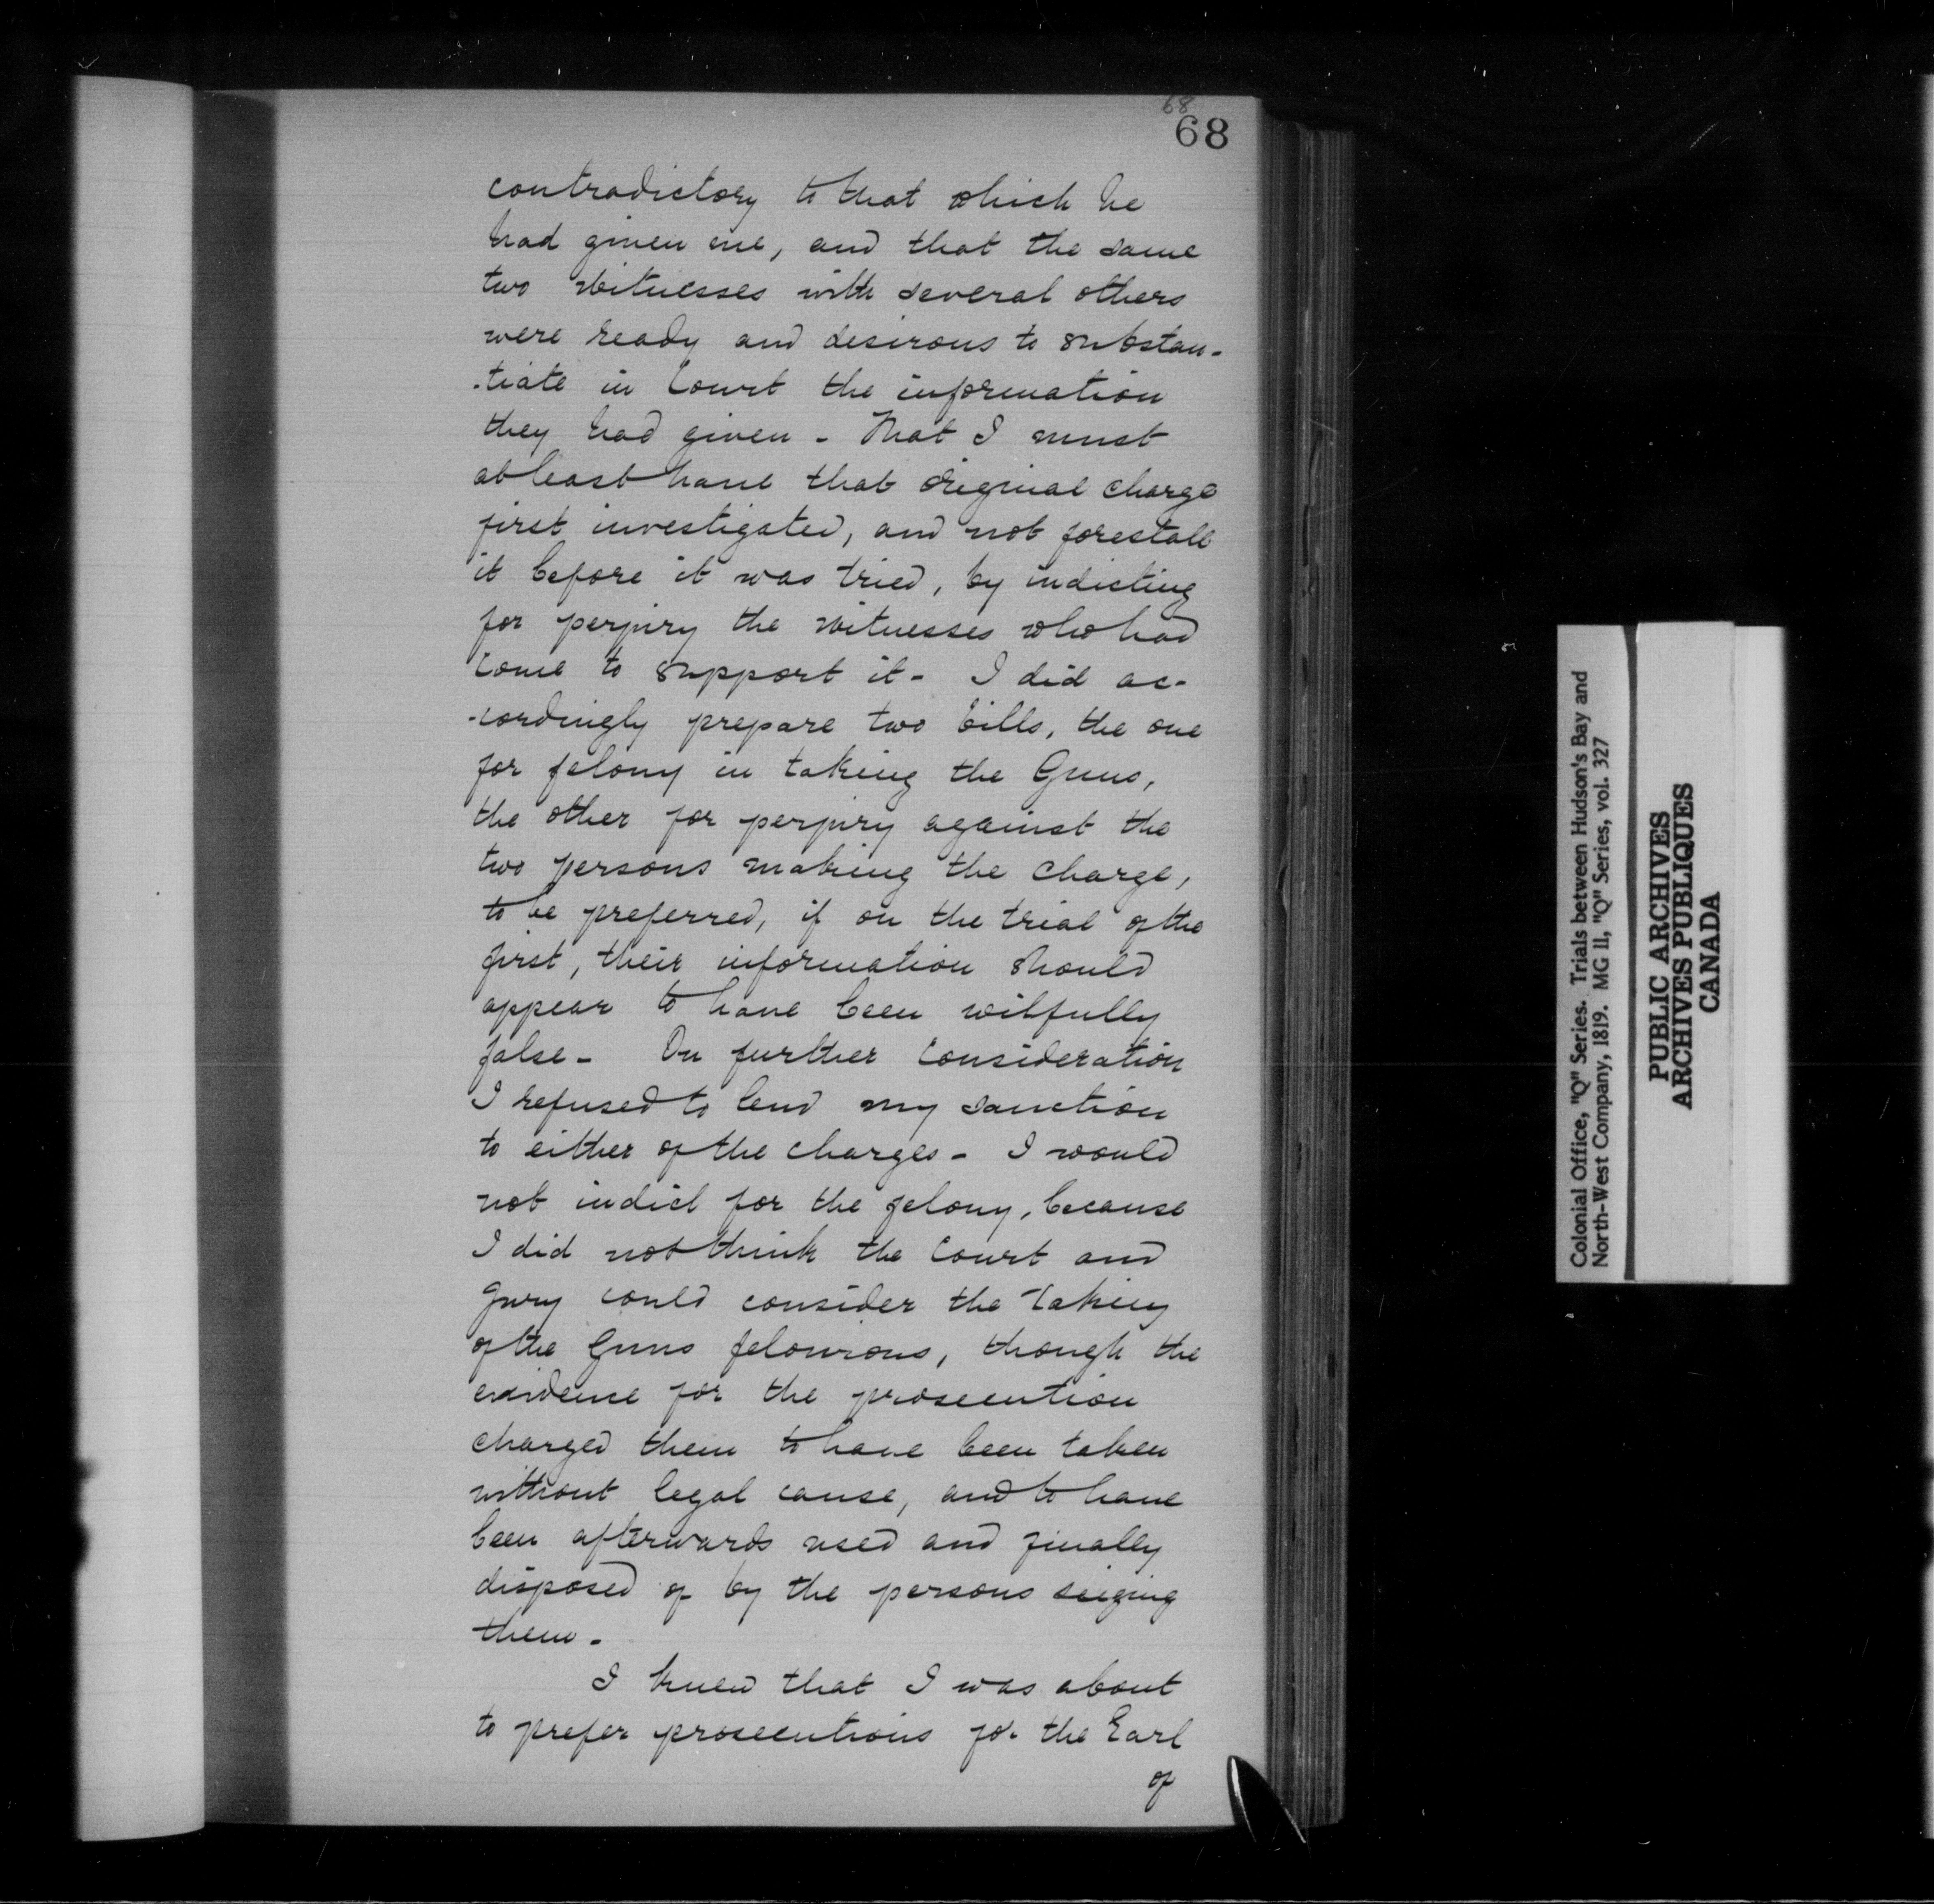 68
68
contradictory to that which he
had given me, and that the same
two witnesses with several others
were ready and desirous to substan-
-tiate in Court the information
they had given - That I must
at least have that original charge
first investigated, and not forestall
it before it was tried, by indicting
for perjury the witnesses who had
come to support it - I did ac-
-cordingly prepare two bills, the one
for felony in taking the Guns,
the other for perjury against the
two persons making the charge,
to be preferred, if on the trial of the
first, their information should
appear to have been wilfully
false - On further consideration
I refused to lend my sanction
to either of the charges - I would
not indict for the felony, because
I did not think the Court and
Jury could consider the taking
of the Guns felonious, though the
evidence for the prosecution
charged them to have been taken
without legal cause, and to have
been afterwards used and finally
disposed of by the persons seizing
them -
I knew that I was about
to prefer prosecutions for the Earl
of
Colonial Office, "Q" Series. Trials between Hudson's Bay and
North-West Company, 1819. MG 11, "Q" Series, vol. 327
PUBLIC ARCHIVES
ARCHIVES PUBLIQUES
CANADA